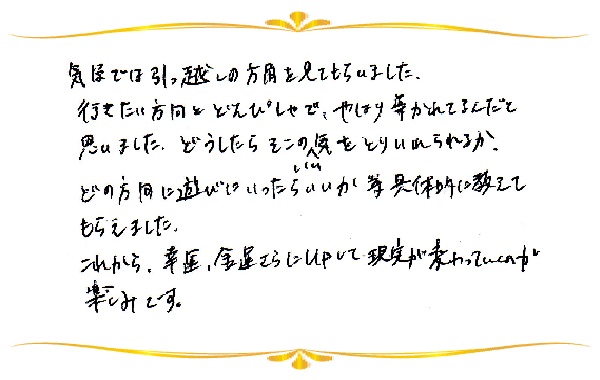 気学では引っ越しの方角を見てもらいました.
行きたい方向とどんぴしゃで、やはり導かれてるんだと
思いました. どうしたらそこの気をとりいれられるか.
いい
どの方向に遊びにいったらいいか等具体的に教えて
もらえました.
これから、幸運、金運さらにUPして現実が変わっていくのが
楽しみです。